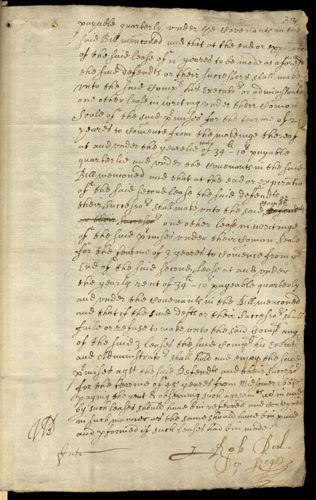 payable quarterly under ye Covenants in the
said Bill mentioned and that at the end or expiration
of the said lease of 21 yeares to be made as aforesd
the said defendts or their successors shall make
unto the said Compt his Executrs or administrators
one other lease in writing under their Comon
Seale of the said premises for the tearme of 21
yeares to Comence from the makeinge thereof
at and under the yearlie rent of 39l - 10s payable
quarterlie and under the Covenants in the said
Bill mentioned and that at the end or experation
of the said second lease the said defendts
their Successors shall make unto the said Compt
or their successors one other lease in writinge
of the said premises under their Comon Seale
for the tearme of 3 yeares to Comence from ye
End of the said second lease at and under
the yearly rent of 39l - 10s payeable quarterly
and under the Covenants in the Bill mentioned
and that if the said defts or their Successors shall
faile or refuse to make unto the said Compt any
of the said 3 leases the said Compt his Executrs
and Administrators shall hold and enjoy the said
premises agst the said Defendts and their Successors
for the tearme of 45 yeares from
paying the rent & observing such agreemts as in and
by such leases should have bin reserved and conteyned
in such manner as the same should have bin
and performed if such leases had bin made
Rob
Dep Regr